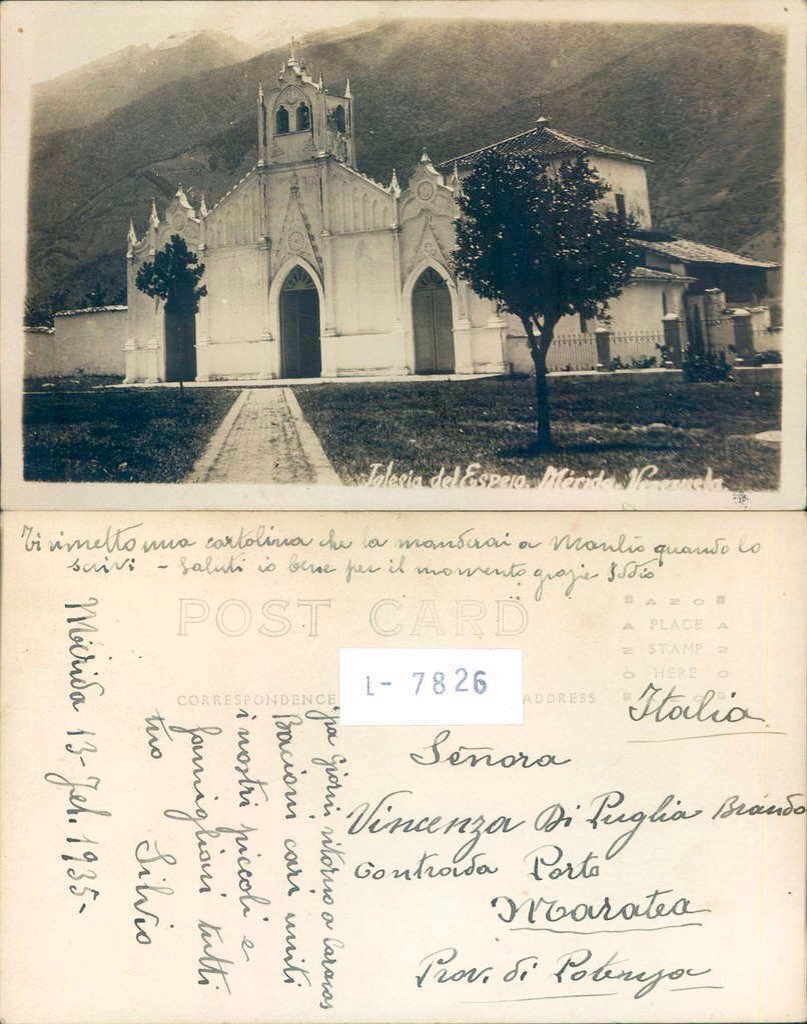 Iglesia del Espejo. Mérida. Venezuela
Ti rimetto una cartolina che la manderai a Manlio quando lo
scrivi - Saluti io bene per il momento grazie Iddio
POST CARD
AZO
PLACE
STAMP
HERE
CORRESPONDENCE
ADDRESS
L- 7826
Mérida 13- Feb. 1935-
giorni ritorno a Caracas
Bacioni cari uniti
i nostri piccoli e
famigliari tutti
tuo Silvio
Italia
Señora
Vincenza Di Puglia Brando
Contrada Porto
Maratea
Prov. di Potenza